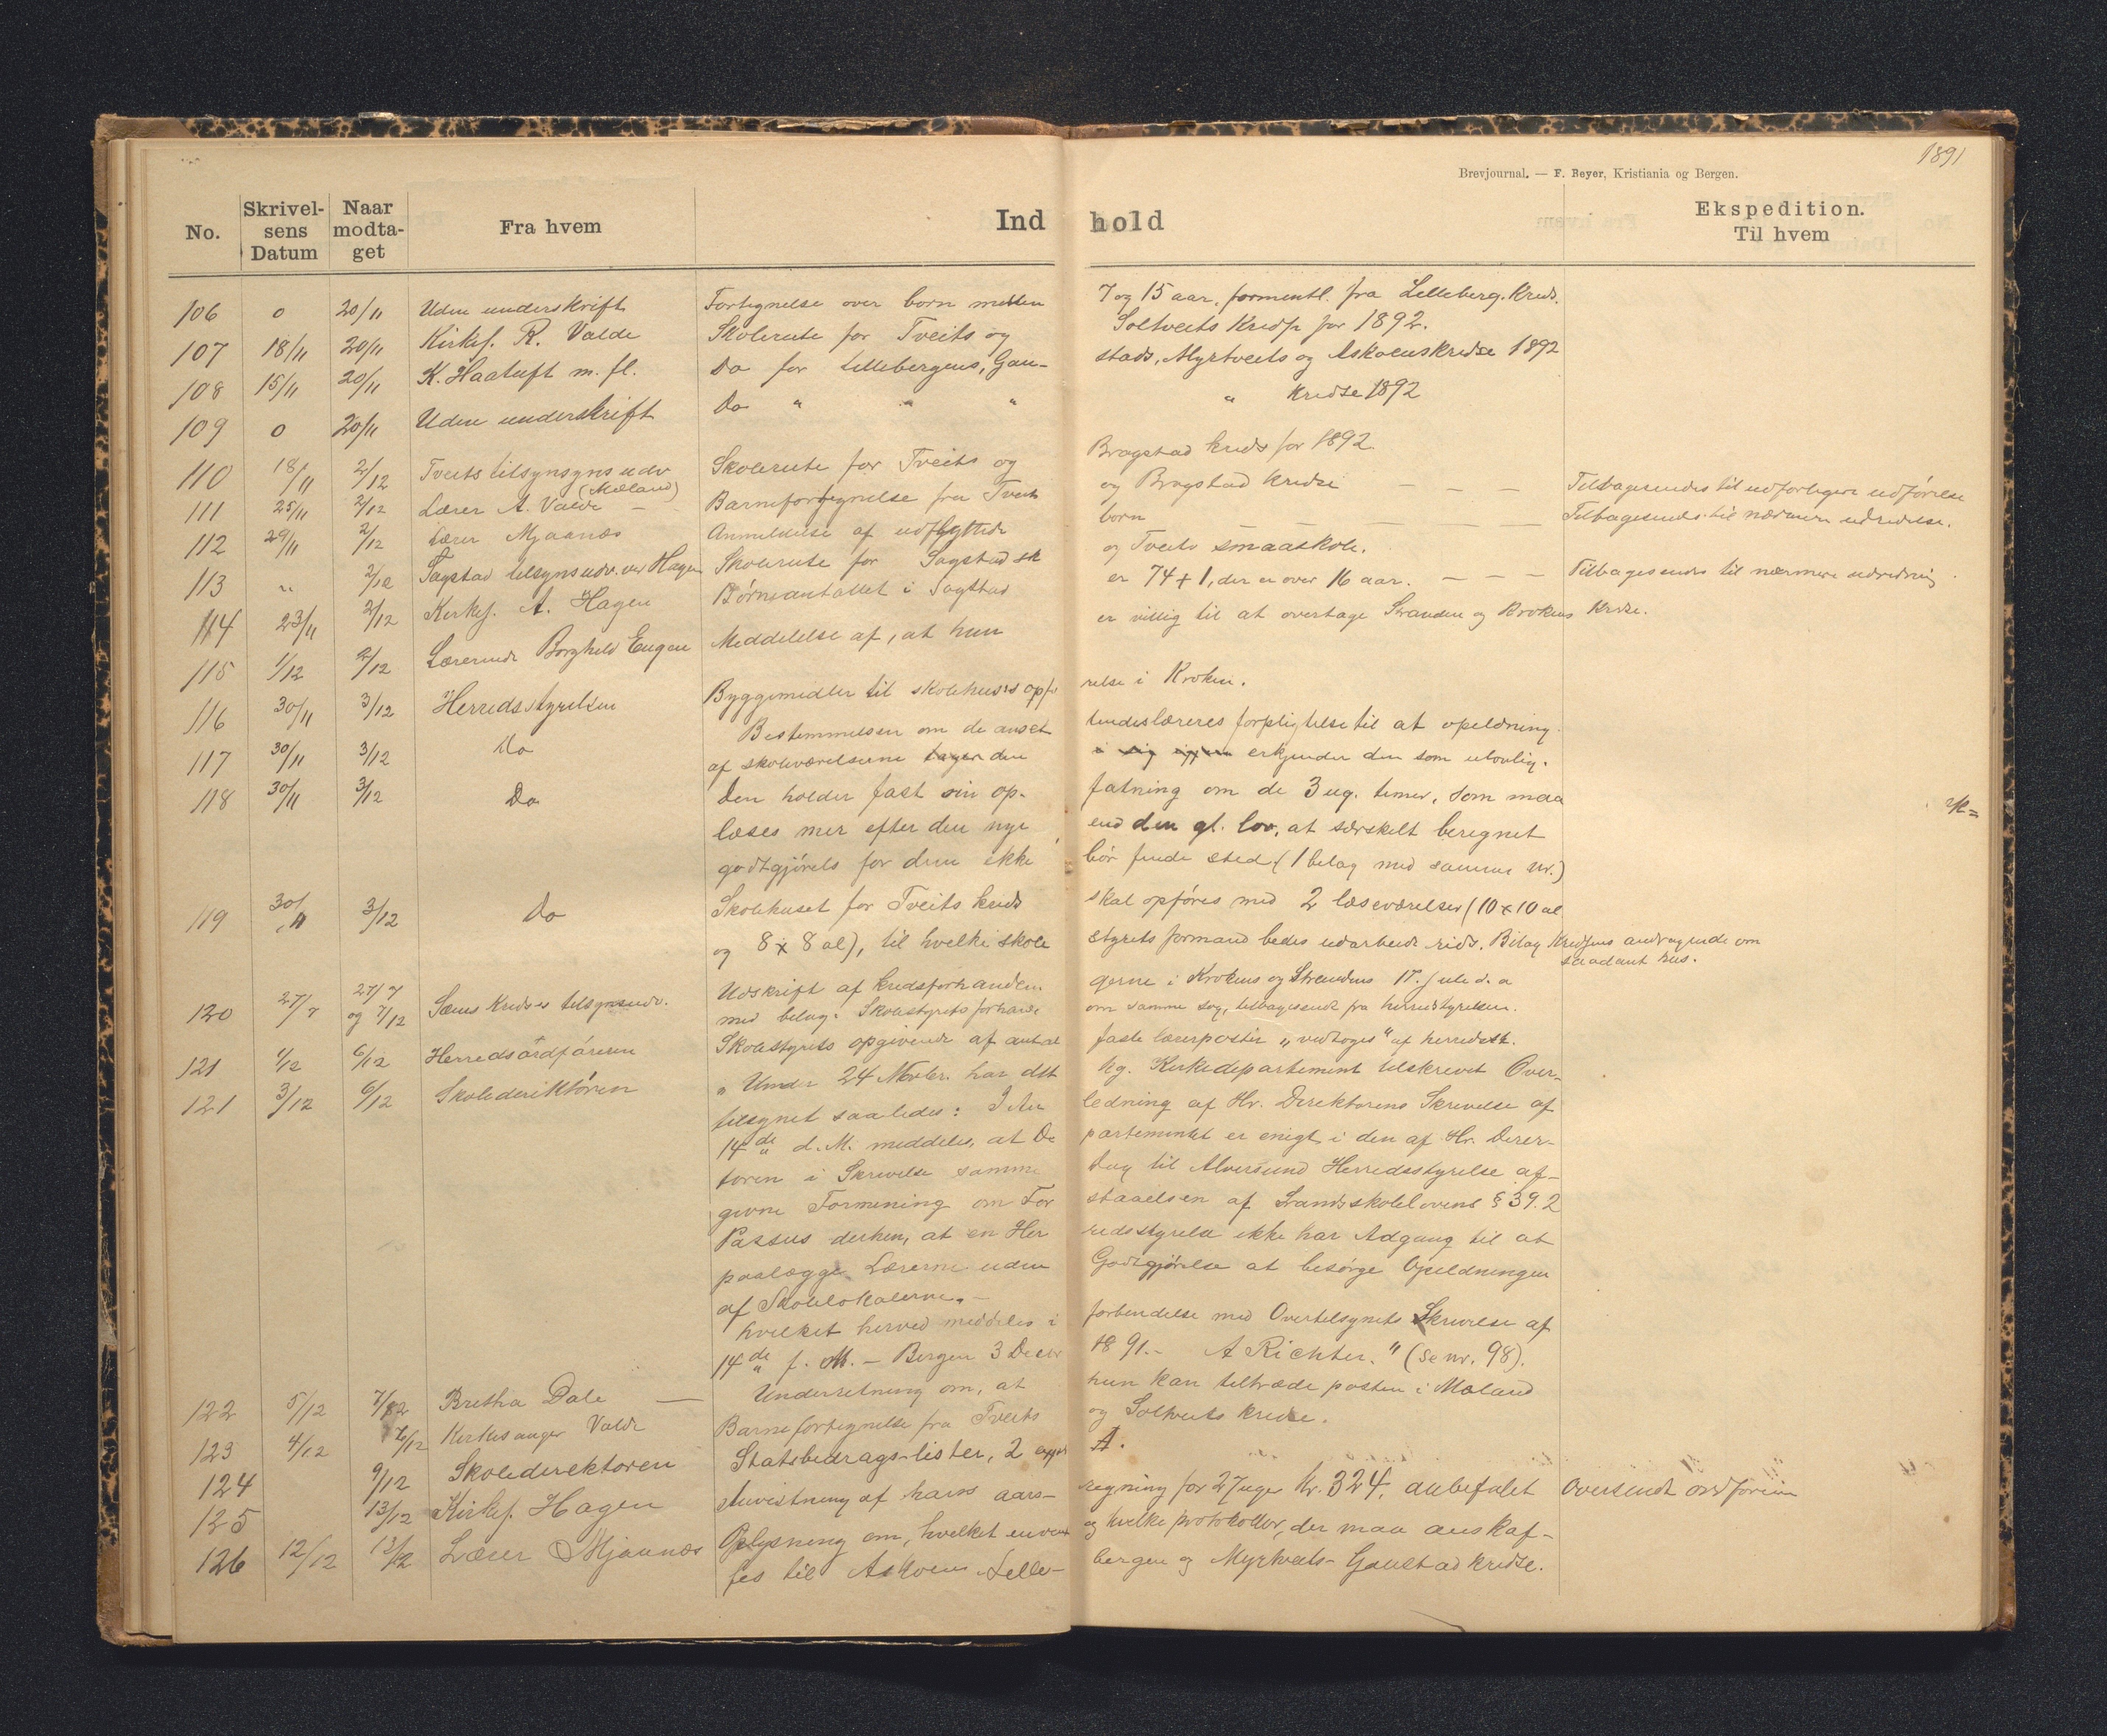 1891
Brevjournal. — F. Beyer, Kristiania og Bergen.
No. Skrivelsens Datum Naar modtaget Fra hvem Indhold Ekspedition. Til hvem
106 0 20/11 Uden underskrift Fortegnelse over born mellem 7 og 15 aar, formentl. fra Lilleberg. Kreds.
107 18/11 20/11 Kirkes. R. Valde Skolerute for Tveits og Soltveits Kreds for 1892.
108 15/11 20/11 K. Haatuft m. fl. Do for Lillebergens, Gaustads, Myrtveits og Askvenskredse 1892
109 0 20/11 Uden underskrift Do " " " " Kredse 1892
110 18/11 2/12 Tveits tilsynsyns udv (Mæland) Skolerute for Tveits og Bragstad kreds for 1892
111 25/11 2/12 Lærer A. Valde — Barnefortegnelse fra Tveit og Bragstad Kredse — — — Tilbagesendes til udførligere udførelse
112 29/11 2/12 Lærer Mjaanæs Anmeldelse af udflyttede born — — — — Tilbagesendes til nærmere udredelse.
113 " 2/12 Sagstad tilsynsudv. ved Hagen Skolerute for Sagstad sk og Tveits smaaskole.
114 23/11 2/12 Kirkes. A. Hagen Børneantallet i Sagstad er 74 + 1, der er over 16 aar. — — — Tilbagesendes til nærmere udredning.
115 1/12 2/12 Lærerinde Borghild Eugen Meddelelse af, at hun er villig til at overtage Stranden og Krokens Kredse.
116 30/11 3/12 Herredsstyrelsen Byggemidler til skolehusets opførelse i Kroken.
117 30/11 3/12 Do Bestemmelsen om de ansettendes læreres forpligtelse til at opeldning
af skoleværelserne tager den i sig igjen erkjender den som ulovlig.
118 30/11 3/12 Do Den holder fast sin opfatning om de 3 ug. timer, som maa
læses mer efter den nye end den gl. lov, at særskelt beregnet
godtgjørels for dem ikke bør finde sted (1 belag med samme nr.)
119 30/11 3/12 Do Skolehuset for Tveits kreds skal opføres med 2 læseværelser (10 x 10 al
og 8 x 8 al), til hvelke skolestyrets formand bedes udarbeide rids. Bilag Kredsens andragende om saadant hus.
120 27/7 27/7 og 7/12 Sæms Kredses tilsynsudv. Udskrift af kredsforhandlingerne i Krokens og Strandens 17. juli d. a
med belag: Skolestyrets forhand. om samme sag, tilbagesendt fra herredstyrelsen.
121 4/12 6/12 Herredsordføreren Skolestyrets opgivende af antal faste lærerposter "vedtoges" af herredsst.
121 3/12 6/12 Skolederiktøren "Under 24 Novbr. har det kg. Kirkedepartement tilskrevet Overtilsynet
saaledes: I Anledning af Hr. Direktorens Skrivelse af
14de d. M. meddeles, at Departementet er enigt i den af Hr. Direktoren
i Skrivelse samme Dag til Alversund Herredsstyrelse afgivne
Formening om Forstaaelsen af Landsskolelovens § 39. 2
Passus derhen, at en Herredsstyrelse ikke har Adgang til at
paalægge Lærerne uden Godtgjørelse at besørge Opeldningen
af Skolelokalerne. —
hvilket herved meddeles i forbindelse med Overtilsynets Skrivelse af
14de f. M. — Bergen 3 Decbr 1891. — A Richter." (se nr. 98).
122 5/12 7/12 Bretha Dale — Underretning om, at hun kan tiltræde posten i Mæland
123 4/12 7/12 Kirkesanger Valde Barnefortegnelse fra Tveits og Soltveits kredse.
124 9/12 Skoledirektoren Statsbedrags-lister, 2 A.
125 13/12 Kirkes. Hagen Anvisning af hans aarsregning for 27 uger kr. 324, anbefalet Oversendt ordføreren
126 12/12 13/12 Lærer Mjaanæs Oplysning om, hvelket og hvelke protokoller, der maa anskaffes
til Askvens Lillebergen og Myrtveits- Gaustad kredse.